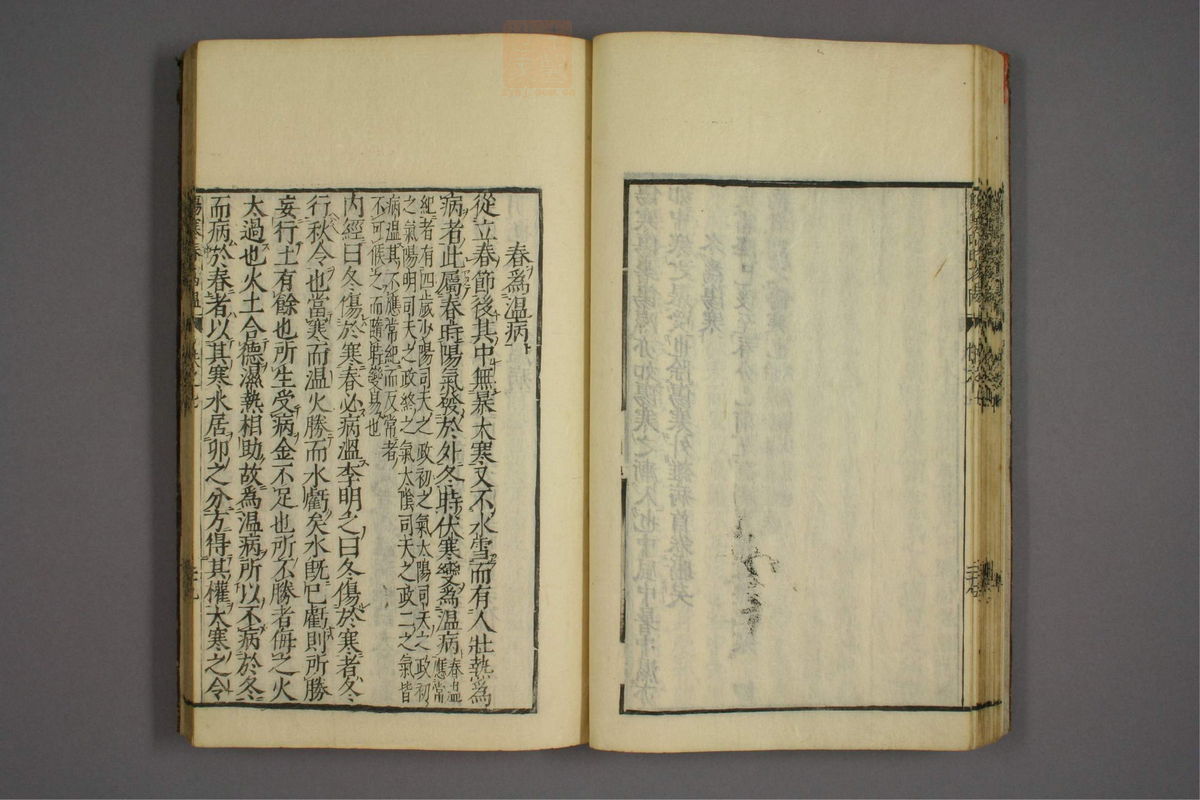 春為溫病
從立春節後其中無暴大寒又不冰雪而有人壯熱為
病者此屬春時陽氣發於外冬時伏寒變為溫病春溫應常
紀者有四歲少陽司天之政初之氣太陽司天之政初
之氣陽明司天之政終之氣太陰司天之政二之氣皆
病溫其不應常紀而反常者
不可候之而隨時變易也
內經曰冬傷於寒春必病溫李明之曰冬傷於寒者冬
行秋令也當寒而溫火勝而水虧矣水既已虧則所勝
妄行土有餘也所生受病金不足也所不勝者侮之火
太過也火土合德濕熱相助故為溫病所以不病於冬
而病於春者以其寒水居卯之分方得其權大寒之令